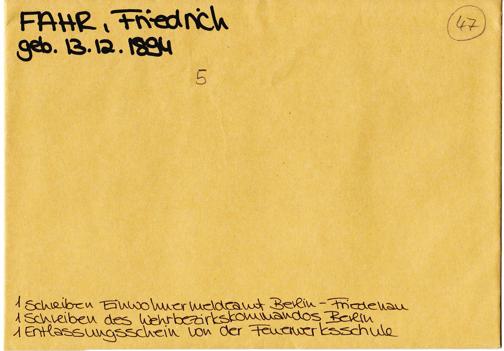 FAHR, Friedrich
47
geb. 13.12.1894
5
1 Schreiben Einwohnermeldeamt Berlin-Friedenau
1 Schreiben des Wehrbezirkskommandos Berlin
1 Entlassungsschein von der Feuerwerksschule